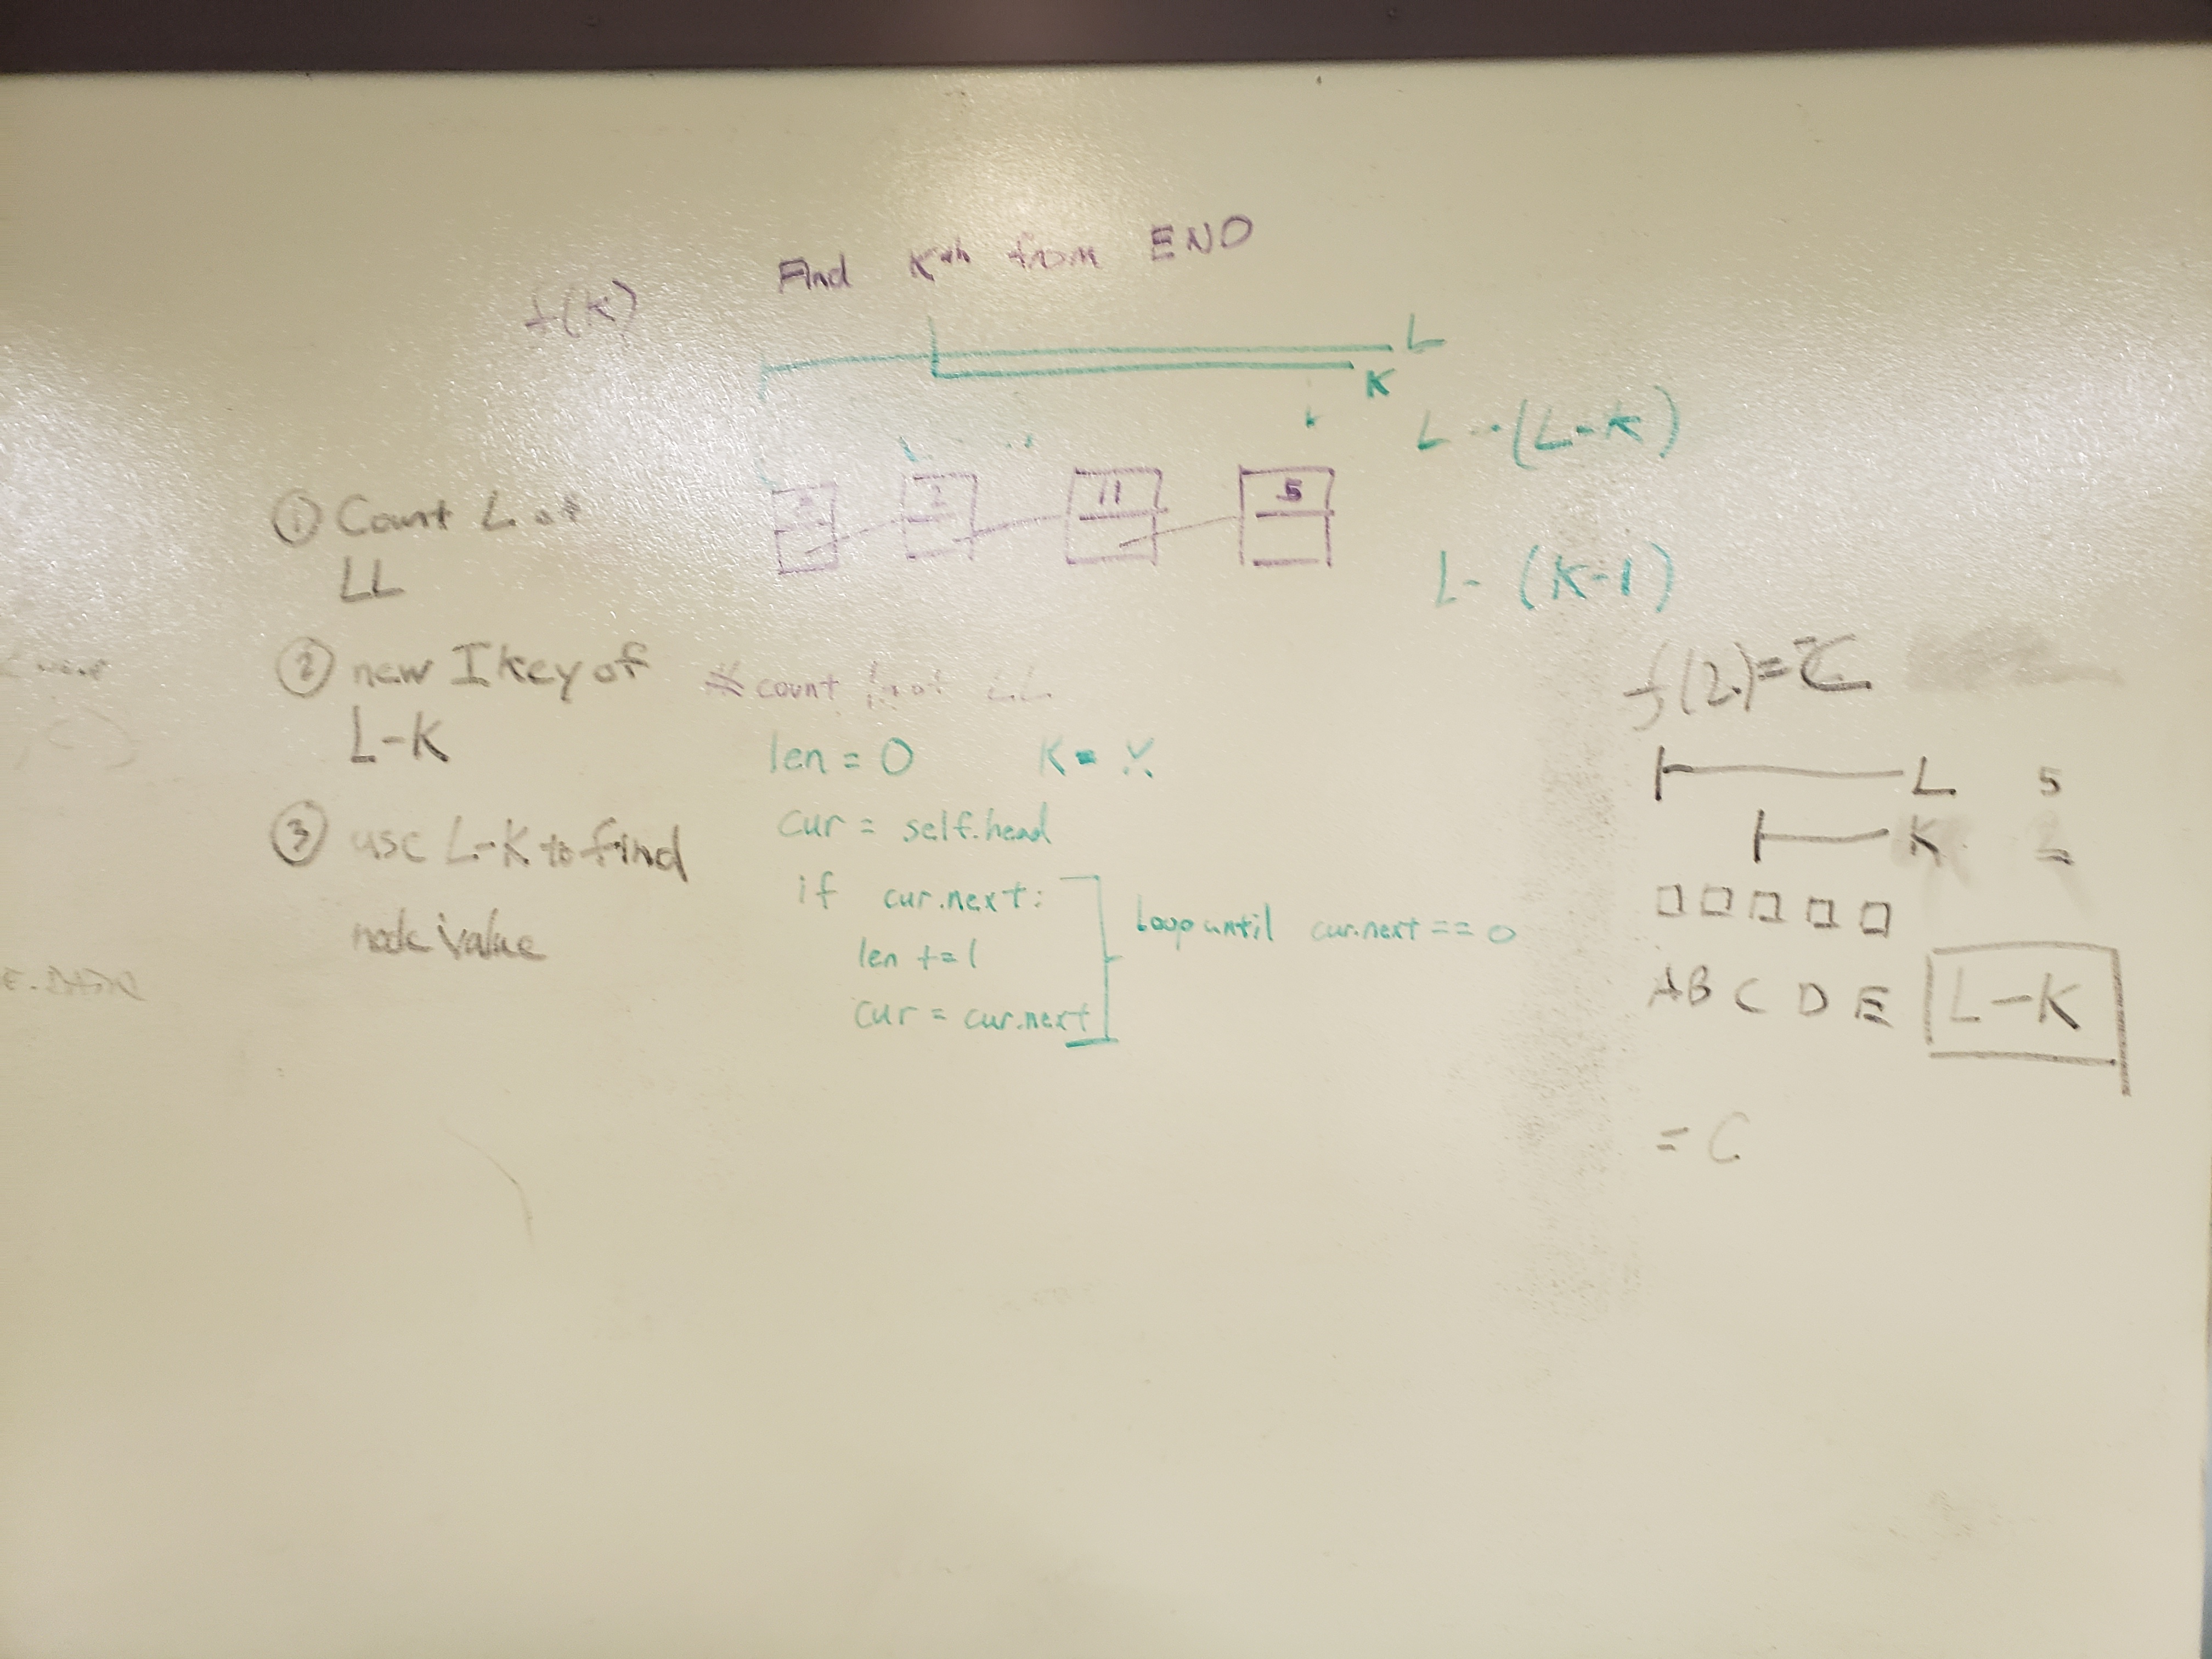 f(K)
Find Kth from END
L
K
L - (L-K)
11
5
L - (K-1)
① Count L of
LL
② new I key of
L-K
③ use L-K to find
node value
# count L of LL
len = 0 K =
cur = self.head
if cur.next:
len += 1
cur = cur.next
Loop until cur.next == 0
f(2) = C
L 5
K 2
A B C D E
L-K
= C